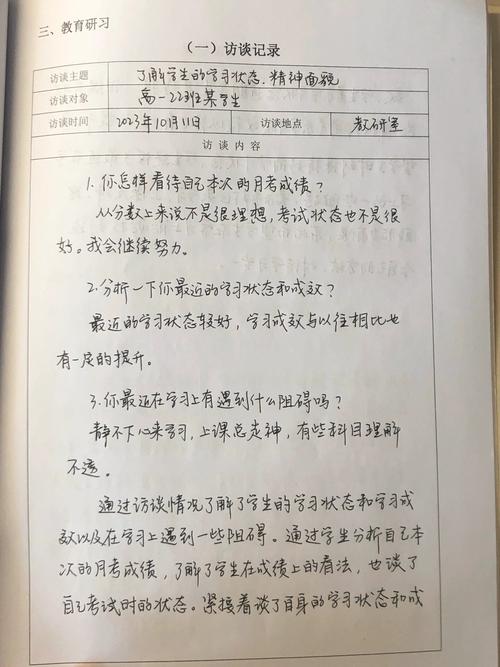 三、教育研习
（一）访谈记录
访谈主题 了解学生的学习状态、精神面貌
访谈对象 高一22班某学生
访谈时间 2023年10月11日 访谈地点 教研室
访 谈 内 容
1. 你怎样看待自己本次的月考成绩？
从分数上来说不是很理想，考试状态也不是很
好。我会继续努力。
2. 分析一下你最近的学习状态和成效？
最近的学习状态较好，学习成效与以往相比也
有一定的提升。
3. 你最近在学习上有遇到什么阻碍吗？
静不下心来学习，上课总走神，有些科目理解
不透。
通过访谈情况了解了学生的学习状态和学习成
效以及在学习上遇到一些阻碍。通过学生分析自己本
次的月考成绩，了解了学生在成绩上的看法，也谈了
自己考试时的状态。紧接着谈了自身的学习状态和成